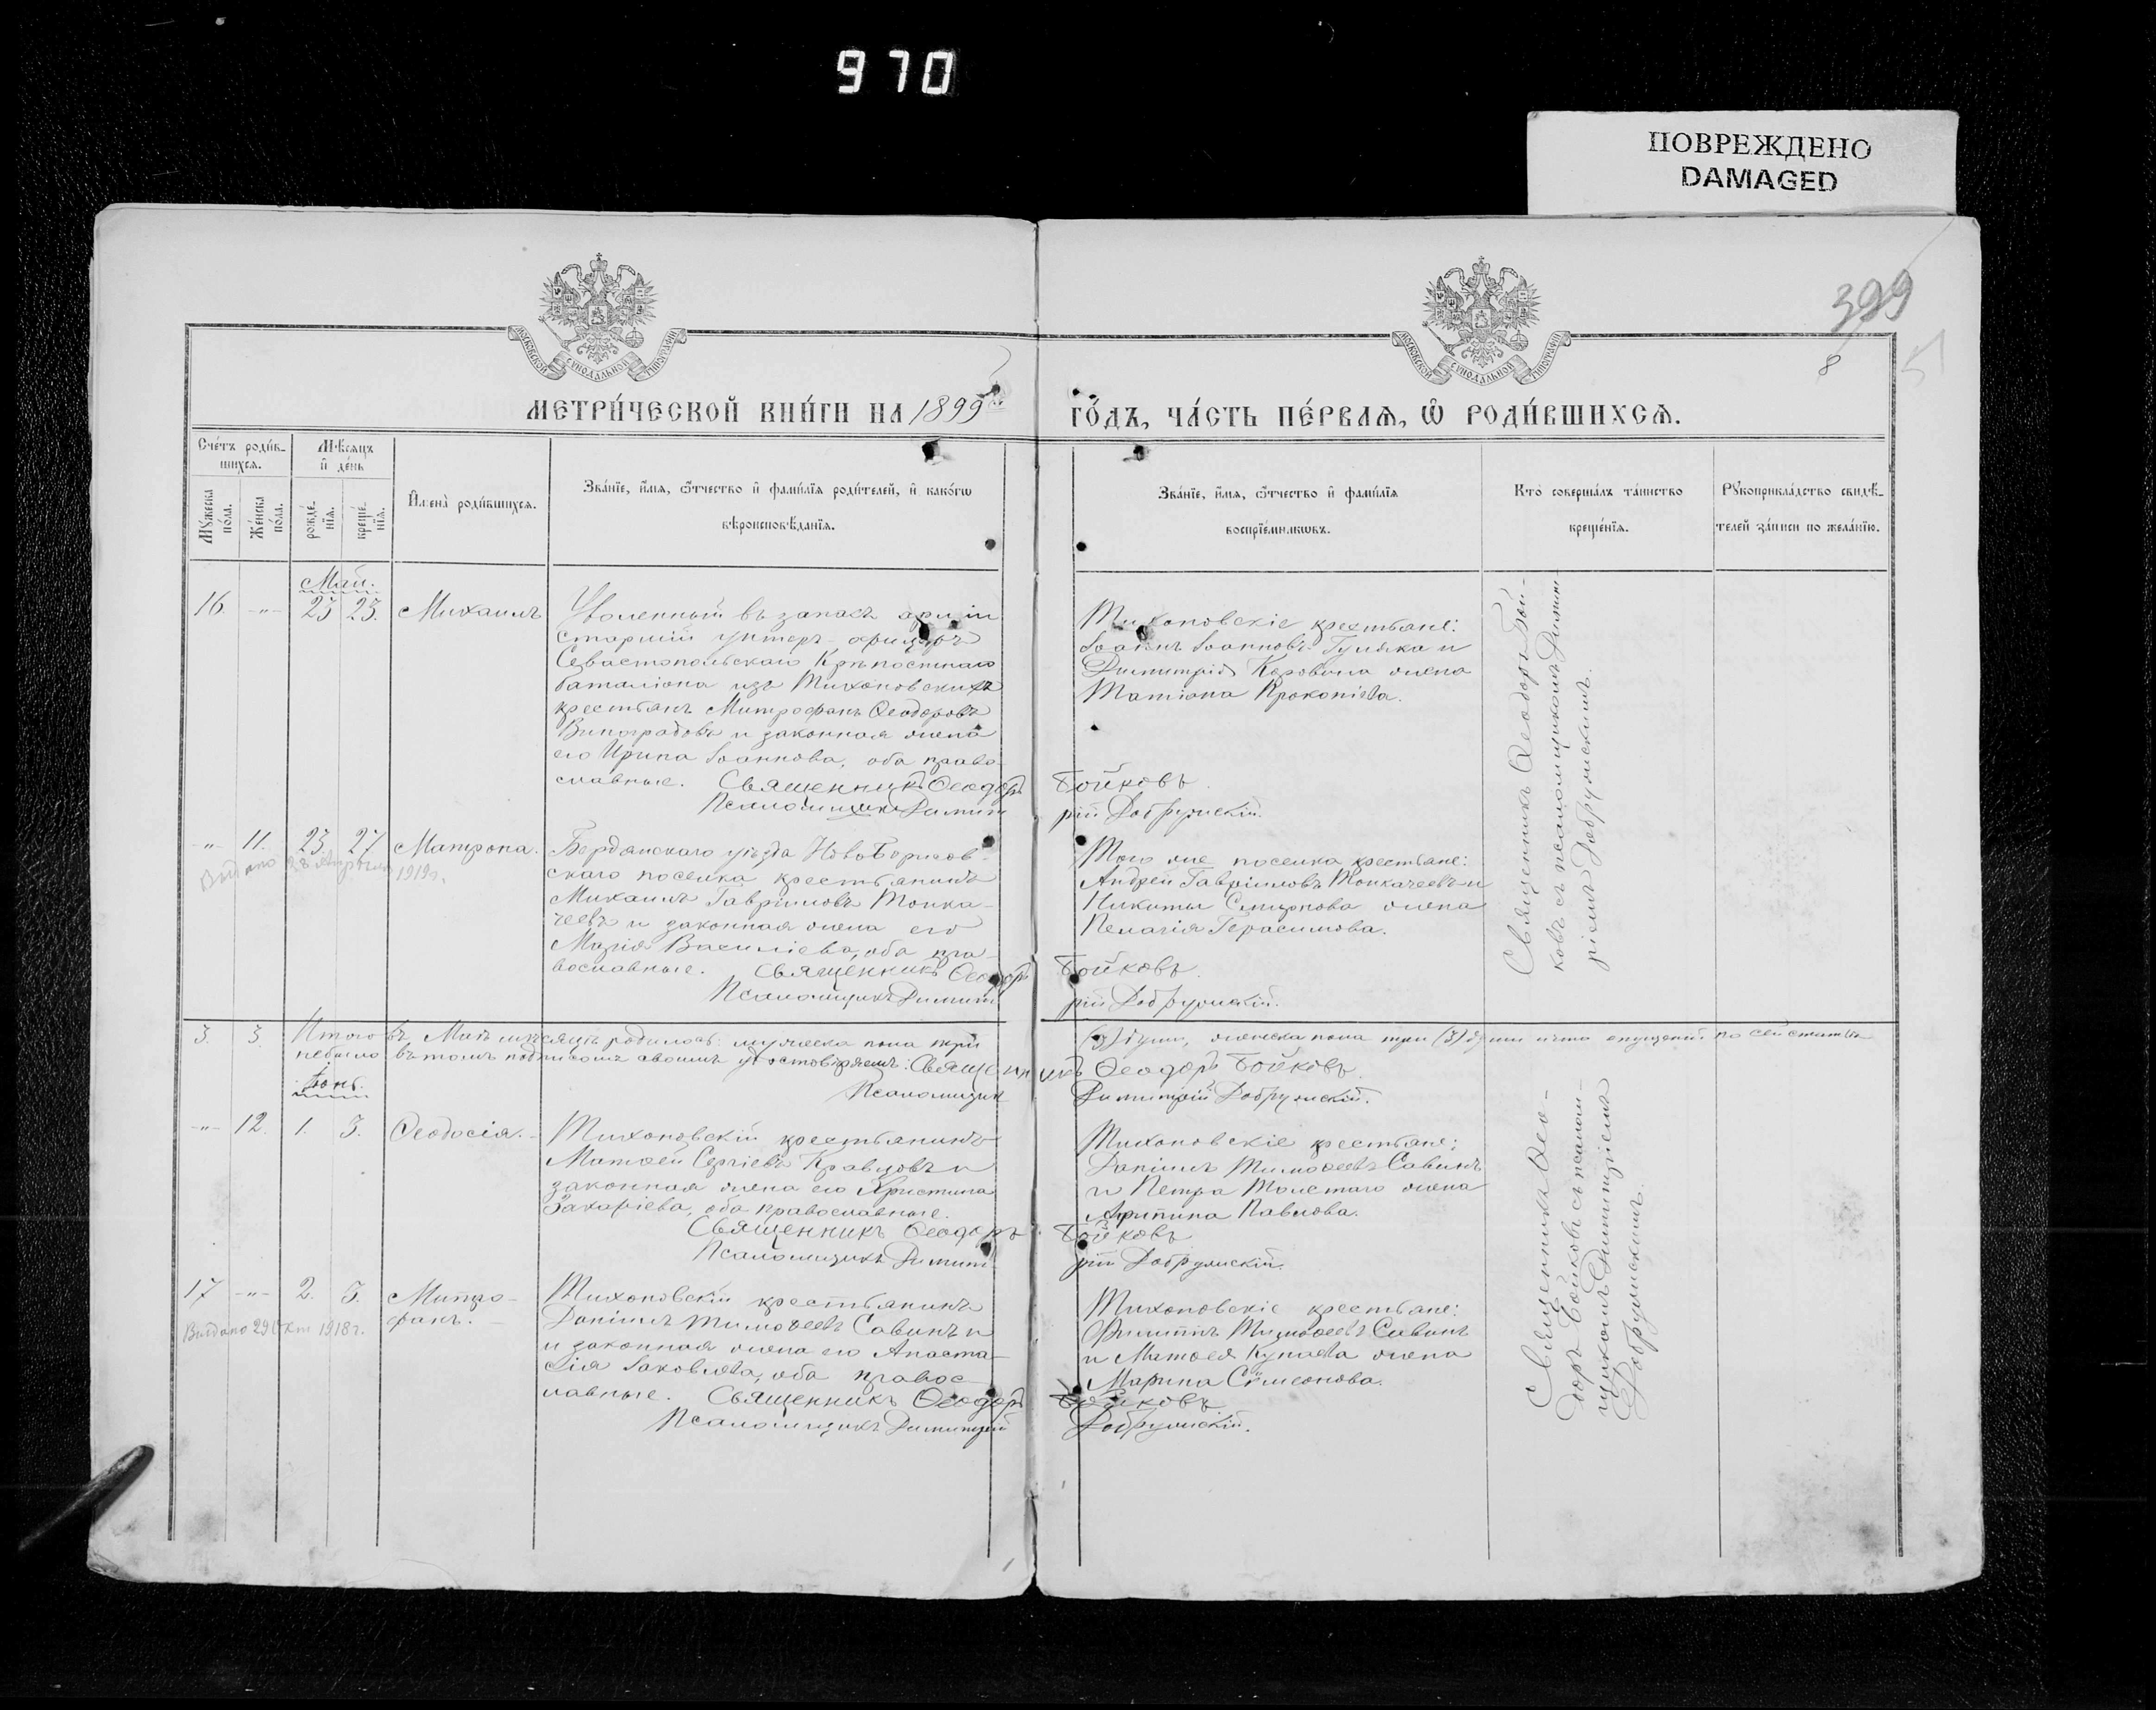 970
ПОВРЕЖДЕНО
DAMAGED
399
8
51
МОСКОВСКОЙ СѴНОДАЛЬНОЙ ТИПОГРАФІИ
МОСКОВСКОЙ СѴНОДАЛЬНОЙ ТИПОГРАФІИ
МЕТРИ́ЧЕСКОЙ КНИ́ГИ НА 1899
ГО́ДЪ, ЧА́СТЬ ПЕ́РВАЯ, Ѽ РОДИ́ВШИХСЯ.
Сче́тъ роди́в-
шихся.
Мѣ́сяцъ
и҆ де́нь
Мꙋ́жеска по́ла.
Же́нска по́ла.
рожде́-нїѧ.
креще́-нїѧ.
И҆мена̀ роди́вшихся.
Зва́нїе, и҆́мѧ, ѻ҆́тчество и҆ фами́лїѧ роди́телей, и҆ како́гѡ
вѣроисповѣ́данїѧ.
Зва́нїе, и҆́мѧ, ѻ҆́тчество и҆ фами́лїѧ
воспрїе́мникѡвъ.
Кто̀ соверша́лъ та́инство
креще́нїѧ.
Рꙋкоприкла́дство свидѣ́-
телей за́писи по жела́нїю.
Май.
16 -"- 23 23. Михаилъ
Уволенный въ запасъ арміи
старшій унтеръ-офицеръ
Севастопольскаго Крѣпостнаго
баталіона изъ Тихоновскихъ
крестьянъ Митрофанъ Ѳеодоровъ
Виноградовъ и законная жена
его Ирина Іоаннова, оба право-
славные. Священникъ Ѳеодоръ Бойковъ.
Псаломщикъ Димитрій Добружскій.
Тихоновскіе крестьяне:
Іоаннъ Іоанновъ Гуляка и
Димитрія Коровина жена
Татіана Прокопіева.
Священникъ Ѳеодоръ Бой-
ковъ съ псаломщикомъ Димит-
ріемъ Добружскимъ.
-"- 11. 23 27 Матрона.
Выдано 28 Апрѣля 1919г.
Бердянскаго уѣзда Ново Борисов-
скаго поселка крестьянинъ
Михаилъ Гавріиловъ Толка-
чевъ и законная жена его
Марія Василіева, оба пра-
вославные. Священникъ Ѳеодоръ Бойковъ.
Псаломщикъ Димитрій Добружскій.
Того же поселка крестьяне:
Андрей Гавріиловъ Толкачевъ и
Никиты Смирнова жена
Пелагія Герасимова.
3. 3. Итого въ Маѣ мѣсяцѣ родилось: мужеска пола три (3) души, женска пола три (3) души и что опущеній по сей статьѣ
небыло въ томъ подписомъ своимъ удостовѣряемъ: Священникъ Ѳеодоръ Бойковъ.
Псаломщик Димитрій Добружскій.
Іюнь.
-"- 12. 1. 3. Ѳеодосія.
Тихоновскій крестьянинъ
Матѳей Сергіевъ Кравцовъ и
законная жена его Христина
Захаріева, оба православные.
Священникъ Ѳеодоръ Бойковъ
Псаломщикъ Димитрій Добружскій.
Тихоновскіе крестьяне:
Даніилъ Тимоѳеевъ Савинъ
и Петра Толстаго жена
Агрипина Павлова.
Священникъ Ѳео-
доръ Бойковъ съ псалом-
щикомъ Димитріемъ
Добружскимъ.
17 -"- 2. 3. Митро-
фанъ.
Выдано 29 Окт 1918г.
Тихоновскій крестьянинъ
Даніилъ Тимоѳеевъ Савинъ и
и законная жена его Анаста-
сія Іаковлева, оба правос-
лавные. Священникъ Ѳеодоръ Бойковъ.
Псаломщикъ Димитрій Добружскій.
Тихоновскіе крестьяне:
Филиппъ Тимоѳеевъ Савинъ
и Матѳея Купаева жена
Марина Сѵмеонова.